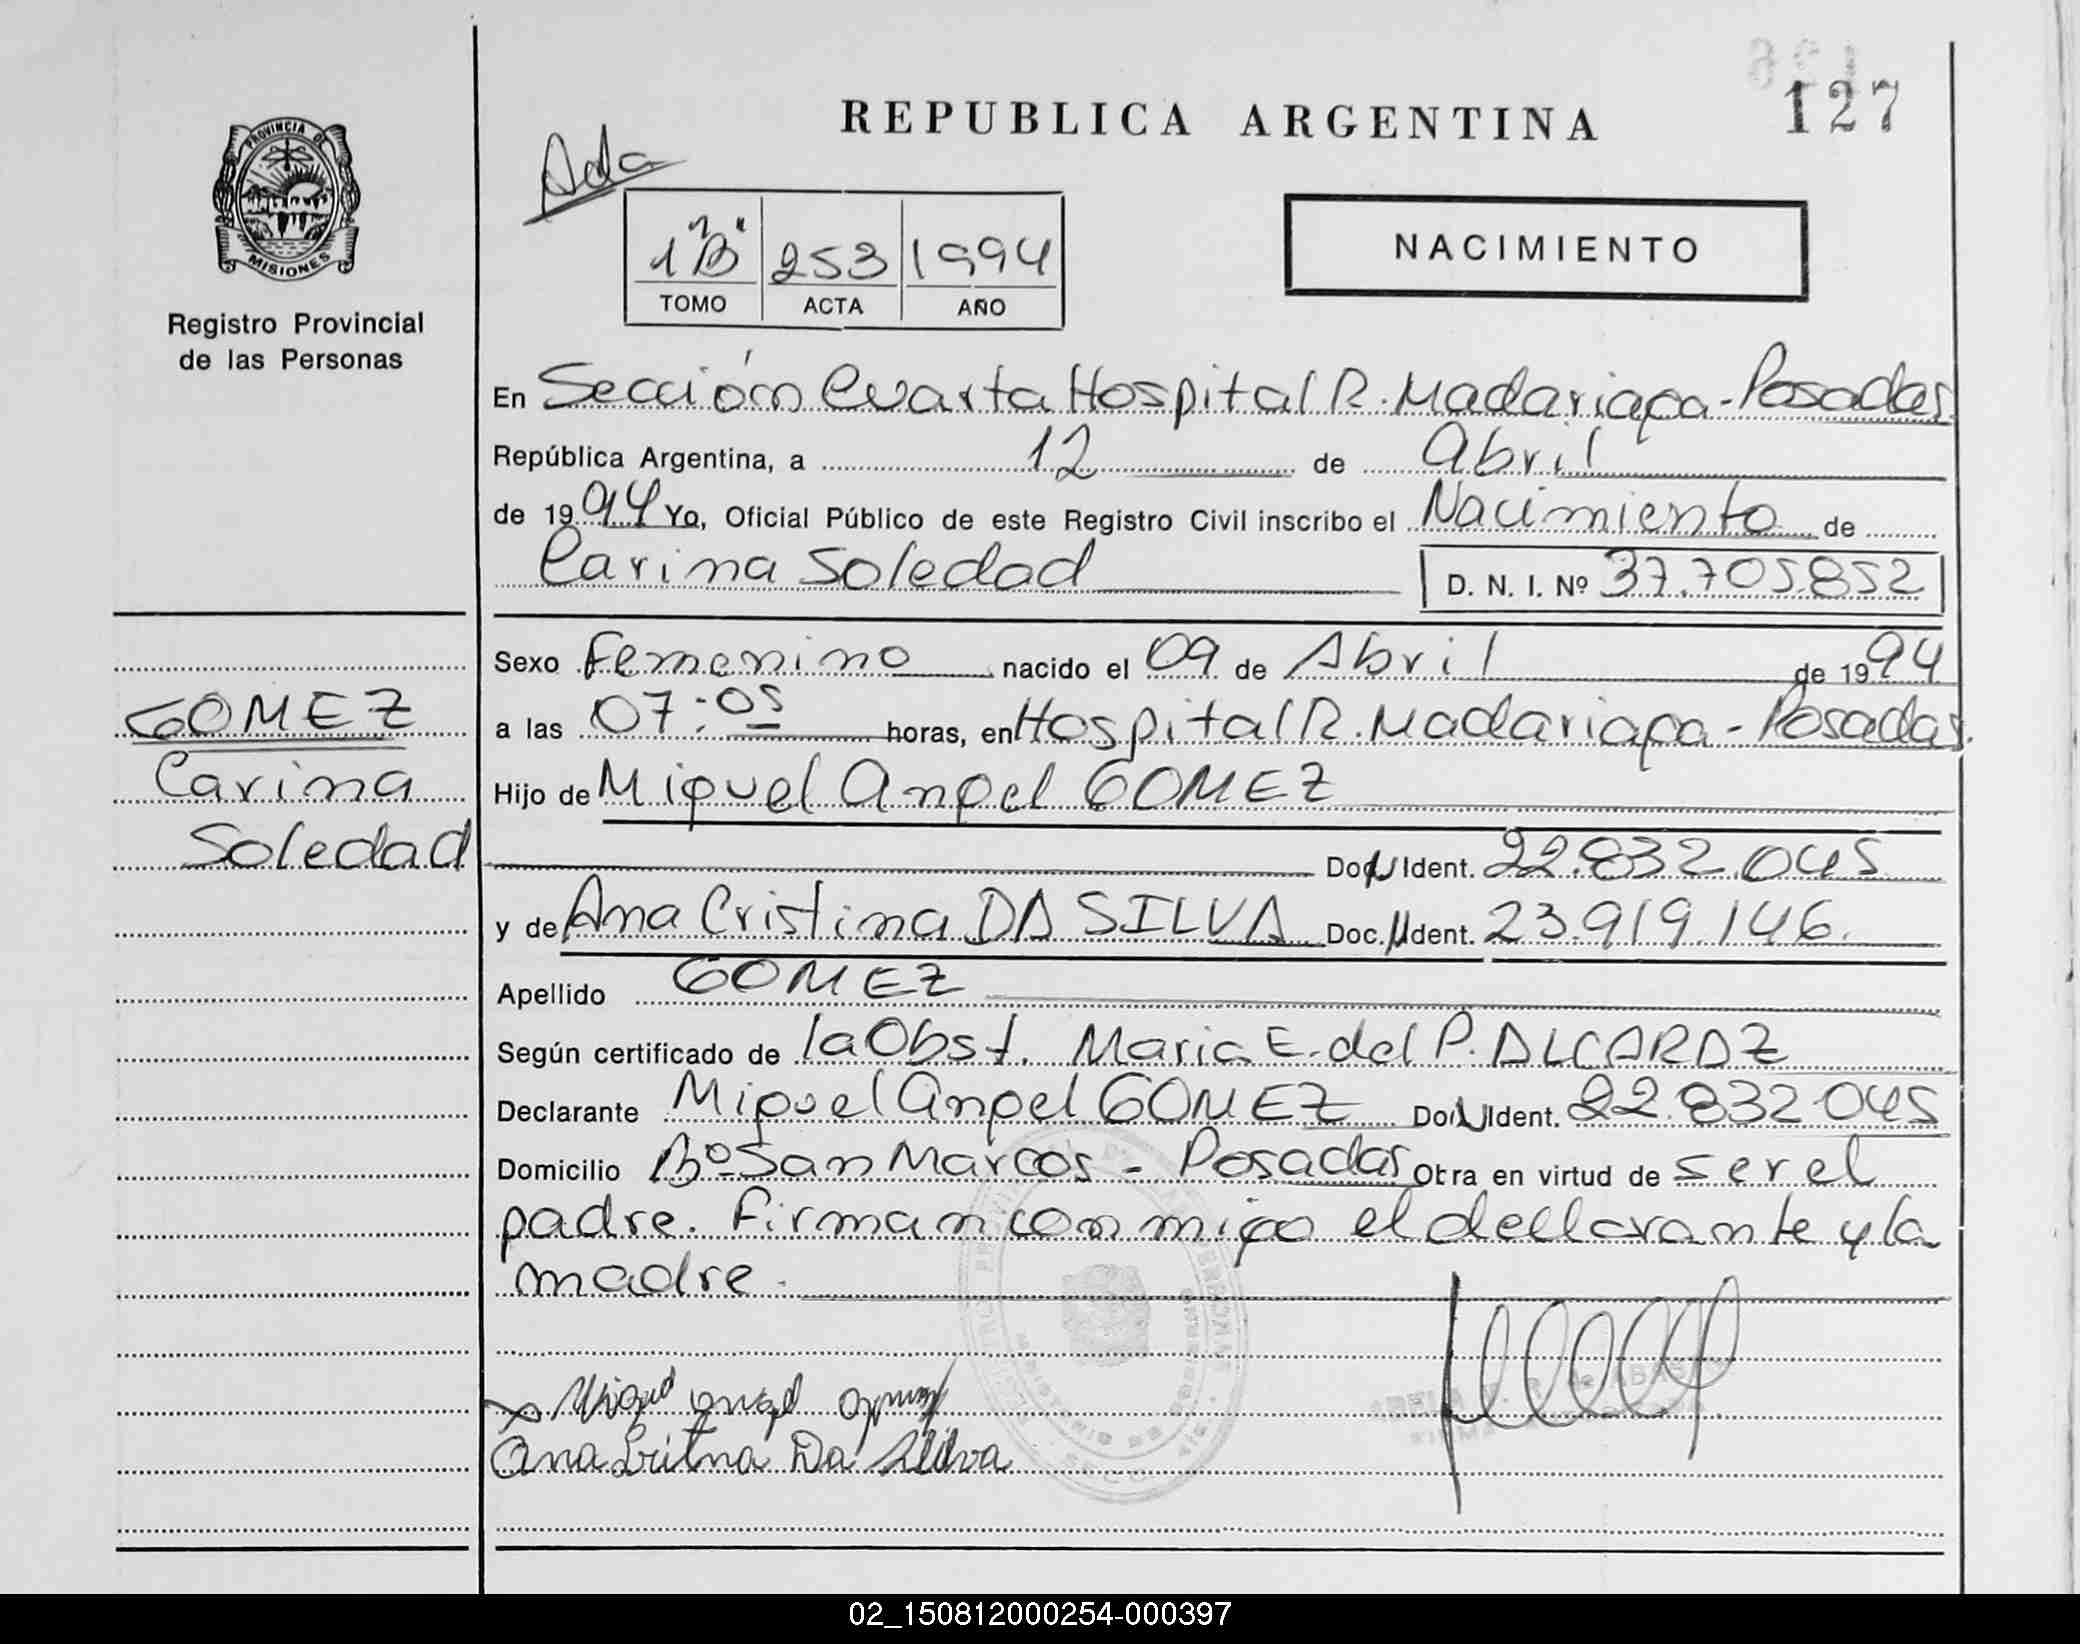 127
REPUBLICA ARGENTINA
PROVINCIA DE
MISIONES
Registro Provincial
de las Personas
Ada
1"B" 253 1994
TOMO ACTA AÑO
NACIMIENTO
En Sección Cuarta Hospital R. Madariaga - Posadas
República Argentina, a 12 de Abril
de 1994 Yo, Oficial Público de este Registro Civil inscribo el Nacimiento de
Carina Soledad D. N. I. Nº 37.705.852
Sexo Femenino nacido el 09 de Abril de 1994
a las 07:05 horas, en Hospital R. Madariaga - Posadas.
Hijo de Miguel Angel GOMEZ
Doc. Ident. 22.832.045
y de Ana Cristina DA SILVA Doc. Ident. 23.919.146.
Apellido GOMEZ
Según certificado de la Obst. Maria E. del P. ALCARAZ
Declarante Miguel Angel GOMEZ Doc. Ident. 22.832.045
Domicilio Bº San Marcos - Posadas Obra en virtud de ser el
padre. Firman conmigo el declarante y la
madre.
GOMEZ
Carina
Soledad
Miguel angel
Ana Da Silva
02_150812000254-000397